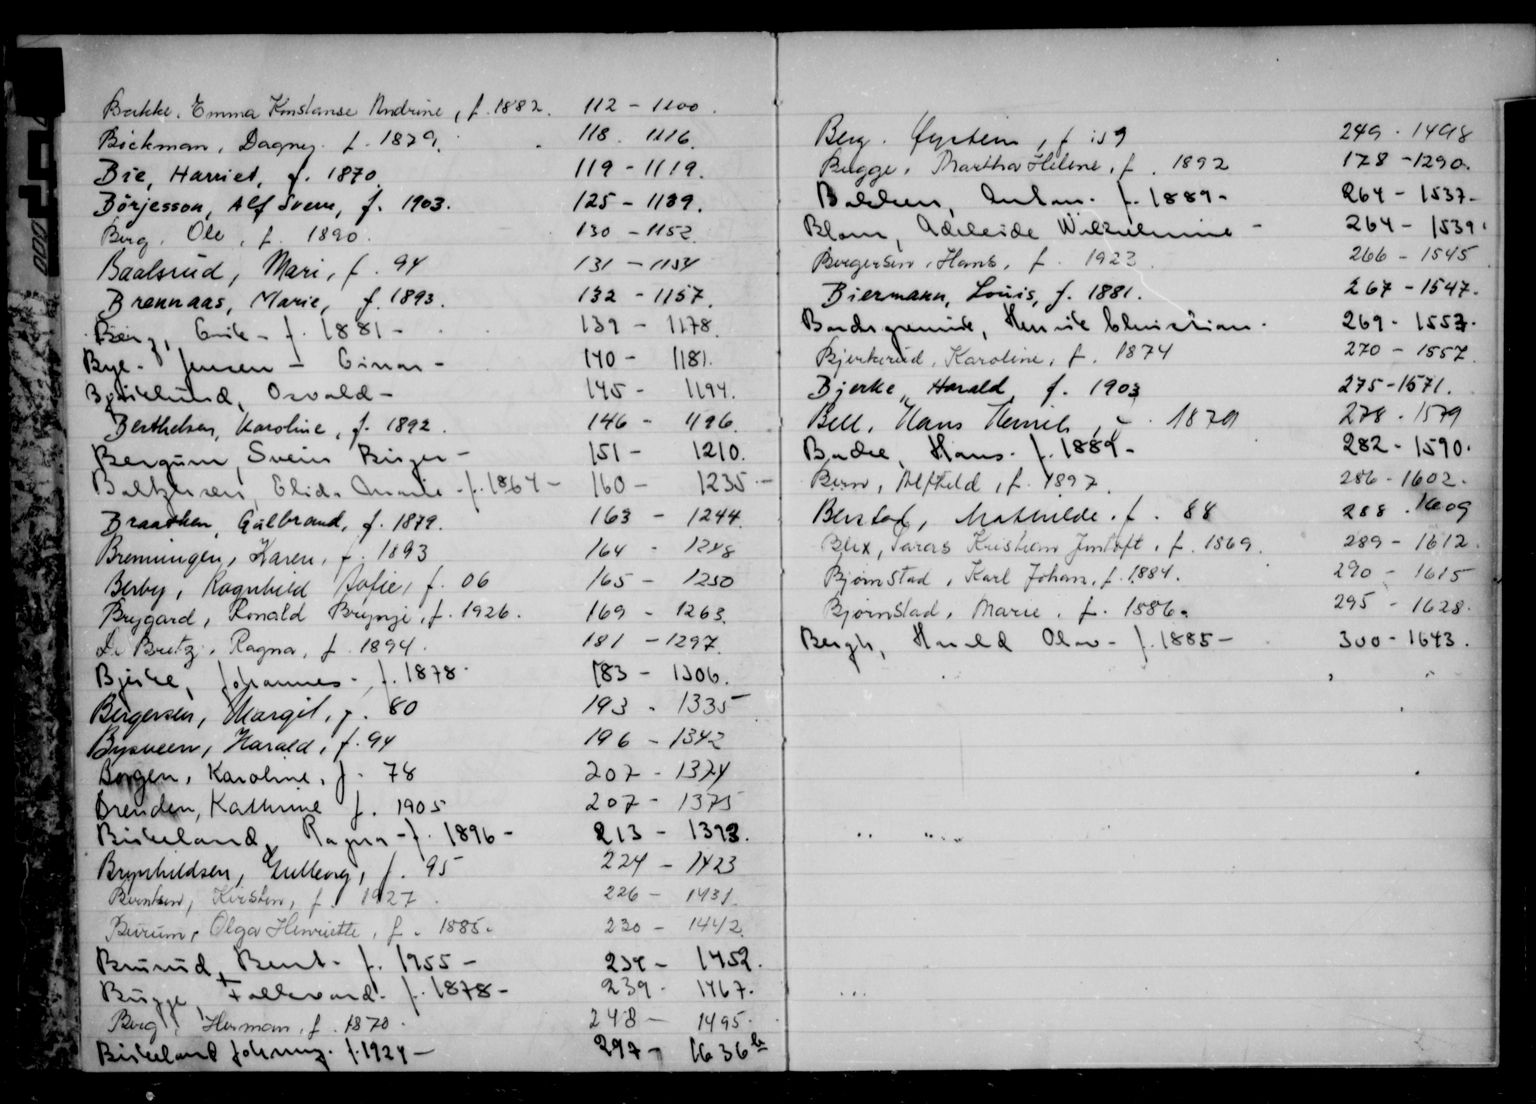 Bakke, Emma Konstanse Andrine, f. 1882. 112 - 1100.
Bickman, Dagny. f. 1879. 118. 1116.
Bie, Harriet, f. 1870. 119 - 1119.
Börjesson, Alf Svenn, f. 1903. 125 - 1139.
Berg, Ole, f. 1890. 130 - 1152.
Baalsrud, Mari, f. 94 131 - 1154
Brennaas, Marie, f. 1893. 132 - 1157.
Berg, f. 1881 - 139 - 1178.
Bye - Jensen - Einar - 140 - 1181.
Bjørklund, Osvald - 145 - 1194.
Berthelsen, Karoline, f. 1892. 146 - 1196.
Bergum, Svein Birger - 151 - 1210.
Baltzersen, Elida Amalie - f. 1864 - 160 - 1235 -
Braathen, Gulbrand, f. 1879. 163 - 1244.
Brenningen, Karen, f. 1893 164 - 1248
Berby, Ragnhild Sofie, f. 06 165 - 1250
Brygard, Ronald Brynje, f. 1926. 169 - 1263.
De Bretz, Ragna, f. 1894. 181 - 1297.
Bjerke, Johannes - f. 1878. 183 - 1306.
Bergersen, Margit, f. 80 193 - 1335
Bysveen, Harald, f. 94 196 - 1342
Borgen, Karoline, f. 78 207 - 1374
Brenden, Kathrine f. 1905 207 - 1375
Birkeland, Ragna - f. 1896 - 213 - 1393.
Brynhildsen, Gulborg, f. 95 224 - 1423
Berntsen, Kirsten, f. 1927. 226 - 1431.
Burum, Olga Henriette, f. 1885. 230 - 1442.
Brurud, Bernt - f. 1955 - 234 - 1452.
Bugge, Hallvard - f. 1878 - 239 - 1467.
Berg, Herman, f. 1870. 248 - 1495.
Birkeland Johnny. f. 1924 - 297 - 1636 b
Berg. Øystein, f. 249 - 1498
Bugge, Martha Helene, f. 1892 178 - 1290.
Bakken, Anton - f. 1889 - 264 - 1537.
Blom, Adeleide Wilhelmine - 264 - 1539.
Borgersen, Hans, f. 1923. 266 - 1545
Biermann, Louis, f. 1881. 267 - 1547.
Henrik Christian. 269 - 1553.
Bjerkerud, Karoline, f. 1874 270 - 1557.
Bjerke, Harald, f. 1903 275 - 1571.
Bell, Hans Henrik, f. 1879 278 - 1579
Hans - f. 1889 - 282 - 1590.
Bern, Alfhild, f. 1897. 286 - 1602.
Berstad, Mathilde. f. 88 288 - 1609
Blix, Kristian f. 1869. 289 - 1612.
Bjørnstad, Karl Johan, f. 1884. 290 - 1615
Bjørnstad, Marie, f. 1886. 295 - 1628.
Bergh, Harald Olav - f. 1885 - 300 - 1643.